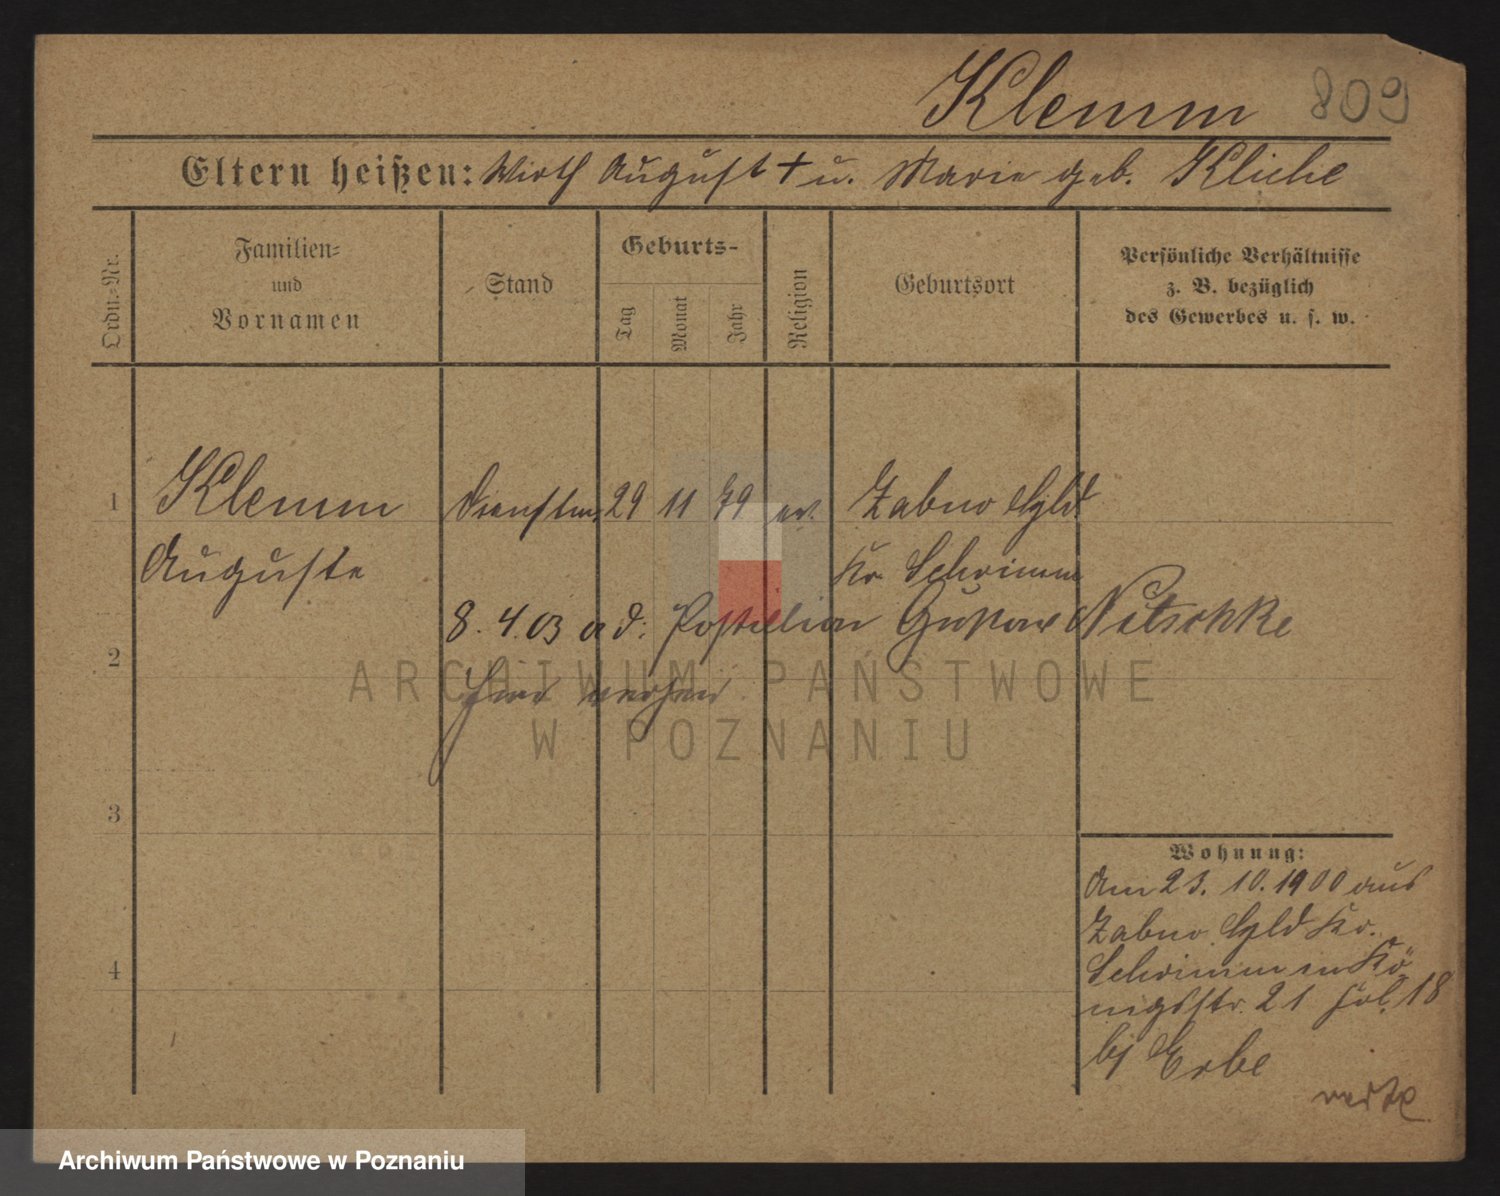 Klemm 809
Eltern heißen: Wirth August † u. Marie geb. Kliche
Ordn.-Nr.
Familien-
und
Vornamen
Stand
Geburts-
Tag
Monat
Jahr
Religion
Geburtsort
Persönliche Verhältnisse
z. B. bezüglich
des Gewerbes u. s. w.
1 Klemm Dienstm. 29 11 79 ev. Zabno Hld
Auguste Kr Schrimm
8. 4. 03 a d: Postillion Gustav Nitschke
2
hier
ARCHIWUM PAŃSTWOWE
W POZNANIU
3
Wohnung:
Am 23. 10. 1900 aus
Zabno Hld Kr.
4 Schrimm in Kö-
nigsstr. 21 Fol. 18
bj Erbe
verte
Archiwum Państwowe w Poznaniu